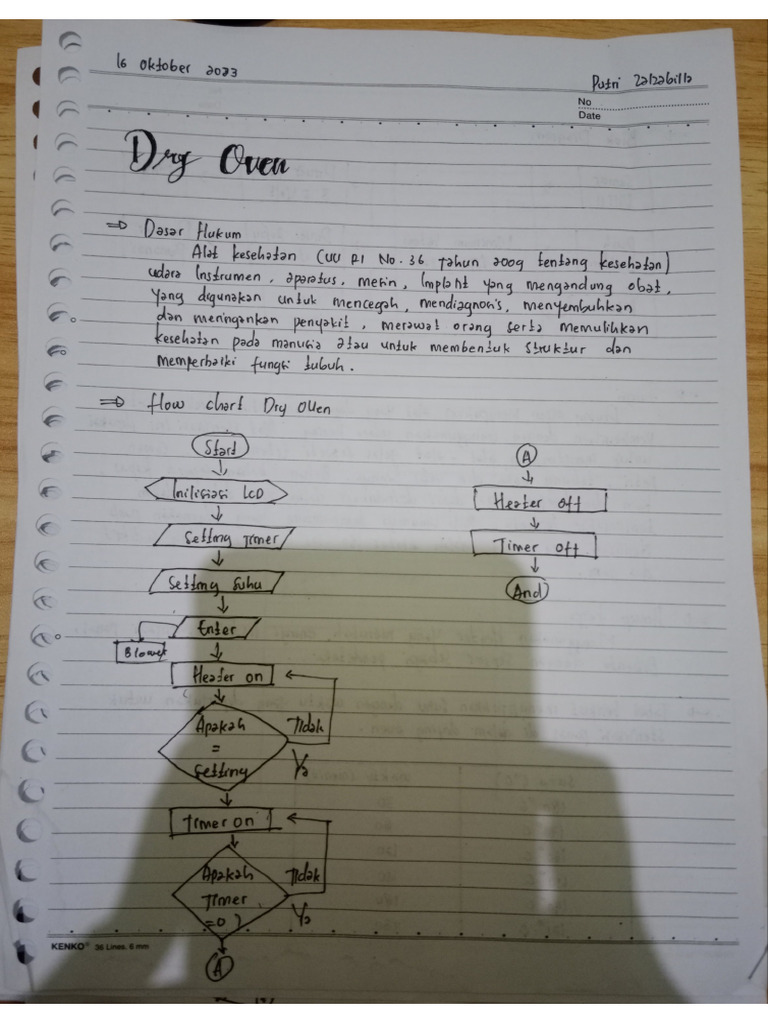 16 Oktober 2023
Putri Zalzabilla
No
Date
Dry Oven
⇒ Dasar Hukum
Alat kesehatan (UU RI No. 36 Tahun 2009 tentang kesehatan)
udara Instrumen, aparatus, mesin, Implant yang mengandung obat,
yang digunakan untuk mencegah, mendiagnosis, menyembuhkan
dan meringankan penyakit, merawat orang serta memulihkan
kesehatan pada manusia atau untuk membentuk struktur dan
memperbaiki fungsi tubuh.
⇒ flow chart Dry Oven
Start
Inilisiasi LCD
Setting Timer
Setting Suhu
Enter
Blower
Heater on
Apakah
=
Setting
Tidak
Ya
Timer on
Apakah
Timer
=0 ?
Tidak
Ya
A
A
Heater off
Timer off
And
KENKO® 36 Lines. 6 mm